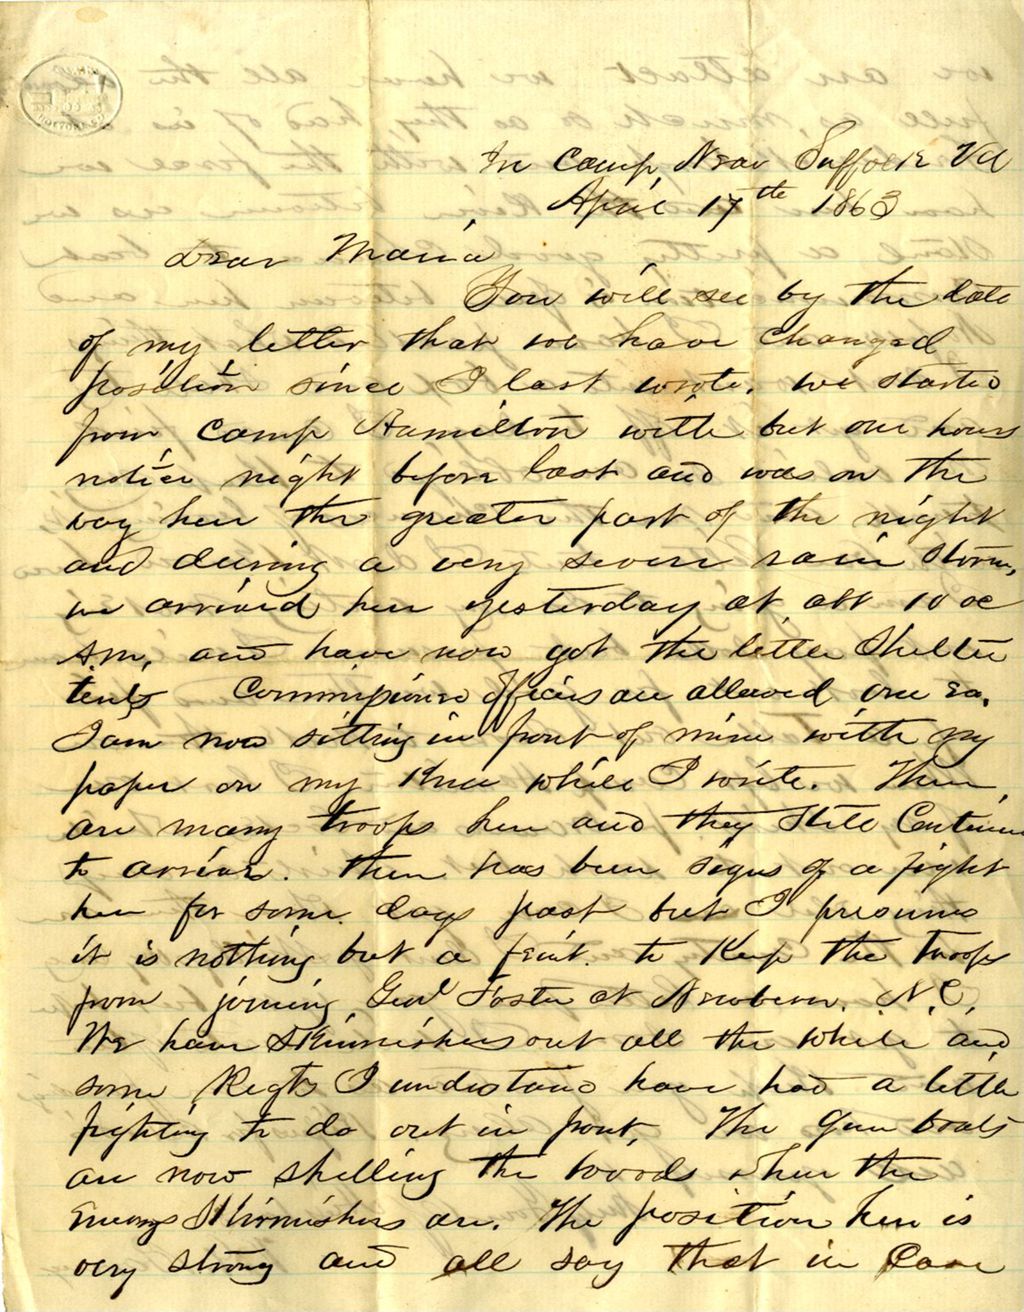 In Camp, Near Suffolk Va
April 17th 1863
Dear Maria
You will see by the date
of my letter that we have changed
position since I last wrote. we started
from Camp Hamilton with but one hours
notice night before last and was on the
way here the greater part of the night
and during a very severe rain storm,
we arrived here yesterday at abt 10 oc
A.M. and have now got the little Shelter
tents Commissioned Officers are allowed one ea.
I am now sitting in front of mine with my
paper on my Knee while I write. There
are many troops here and they still Continue
to arrive. there has been signs of a fight
here for some days past but I presume
it is nothing but a feint to Keep the troops
from joining Genl Foster at Newbern. N.C.
We have Skirmishers out all the while and
some Regts I understand have had a little
fighting to do out in front. The Gun boats
are now shelling the woods where the
Enemys Skirmishers are. The position here is
very strong and all say that in Case